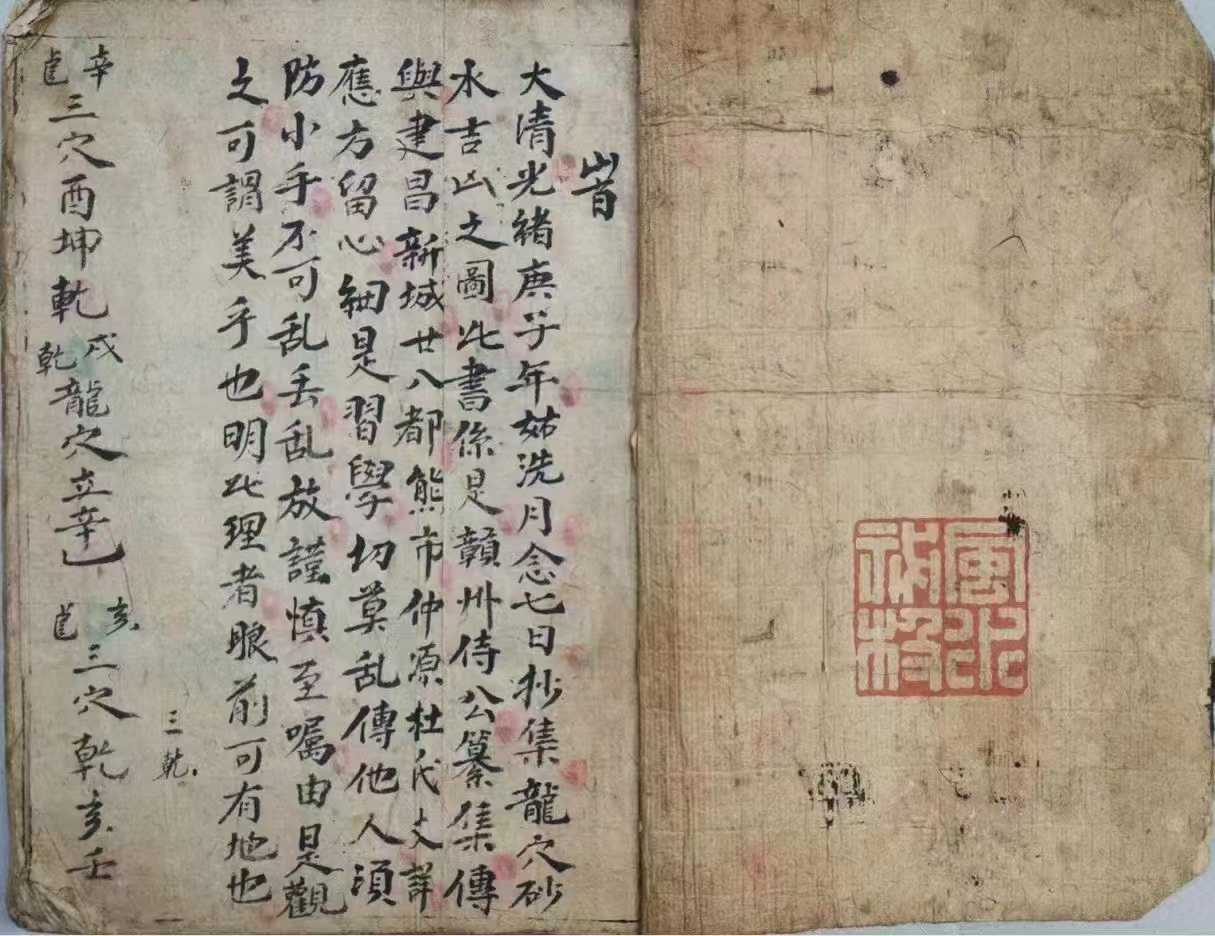 旹
大清光緒庚子年姑洗月念七日抄集龍穴砂
水吉凶之圖此書係是贛州侍公纂集傳
與建昌新城廿八都熊市仲源杜氏文詳
應方留心細是習學切莫乱傳他人須
防小手不可乱丢乱放謹慎至嘱由是觀
之可謂美乎也明此理者眼前可有地也
三乾
辛
三穴酉坤乾戌乾龍穴立辛
亥
三穴乾亥壬
風水